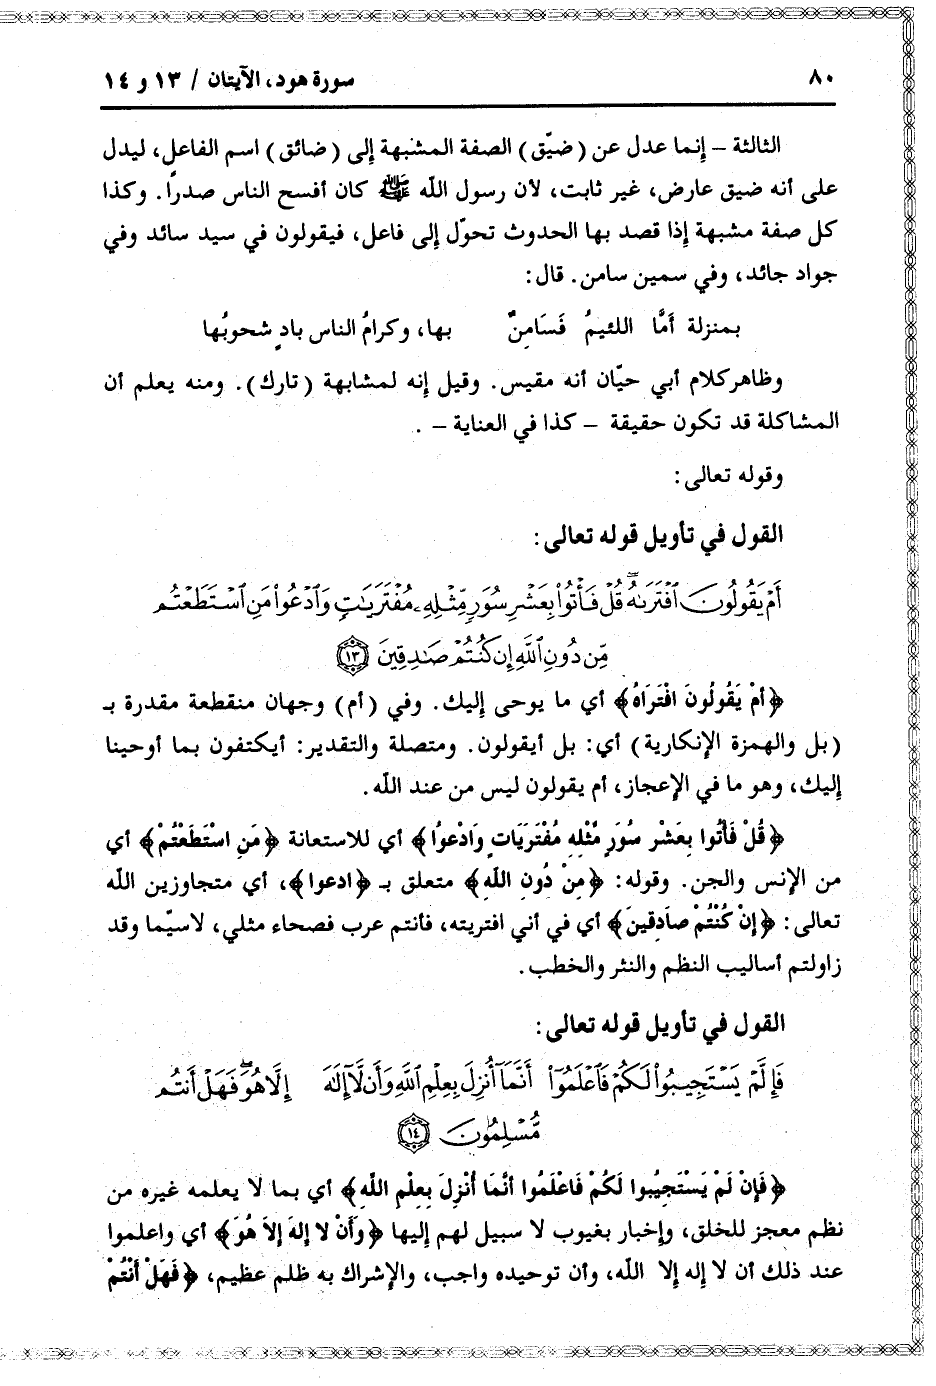 ٨٠ سورة هود، الآيتان / ١٣ و ١٤
الثالثة – إنما عدل عن (ضيّق) الصفة المشبهة إلى (ضائق) اسم الفاعل، ليدل
على أنه ضيق عارض، غير ثابت، لأن رسول الله ﷺ كان أفسح الناس صدراً. وكذا
كل صفة مشبهة إذا قصد بها الحدوث تحوّل إلى فاعل، فيقولون في سيد سائد وفي
جواد جائد، وفي سمين سامن. قال:
بمنزلة أَمَّا اللئيمُ فَسَامِنٌ بها، وكرامُ الناس بادٍ شحوبُها
وظاهركلام أبي حيّان أنه مقيس. وقيل إنه لمشابهة (تارك). ومنه يعلم أن
المشاكلة قد تكون حقيقة – كذا في العناية – .
وقوله تعالى:
القول في تأويل قوله تعالى:
أَمۡ يَقُولُونَ ٱفۡتَرَىٰهُۖ قُلۡ فَأۡتُواْ بِعَشۡرِ سُوَرٖ مِّثۡلِهِۦ مُفۡتَرَيَٰتٖ وَٱدۡعُواْ مَنِ ٱسۡتَطَعۡتُم
مِّن دُونِ ٱللَّهِ إِن كُنتُمۡ صَٰدِقِينَ ١٣
﴿أَمْ يَقُولُونَ افْتَرَاهُ﴾ أي ما يوحى إليك. وفي (أم) وجهان منقطعة مقدرة بـ
(بل والهمزة الإنكارية) أي: بل أيقولون. ومتصلة والتقدير: أيكتفون بما أوحينا
إليك، وهو ما في الإعجاز، أم يقولون ليس من عند الله.
﴿قُلْ فَأْتُوا بِعَشْرِ سُوَرٍ مِّثْلِهِ مُفْتَرَيَاتٍ وَادْعُوا﴾ أي للاستعانة ﴿مَنِ اسْتَطَعْتُمْ﴾ أي
من الإنس والجن. وقوله: ﴿مِنْ دُونِ اللهِ﴾ متعلق بـ ﴿ادعوا﴾، أي متجاوزين الله
تعالى: ﴿إِنْ كُنْتُمْ صَادِقِينَ﴾ أي في أني افتريته، فأنتم عرب فصحاء مثلي، لاسيّما وقد
زاولتم أساليب النظم والنثر والخطب.
القول في تأويل قوله تعالى:
فَإِلَّمۡ يَسۡتَجِيبُواْ لَكُمۡ فَٱعۡلَمُوٓاْ أَنَّمَآ أُنزِلَ بِعِلۡمِ ٱللَّهِ وَأَن لَّآ إِلَٰهَ إِلَّا هُوَۖ فَهَلۡ أَنتُم
مُّسۡلِمُونَ ١٤
﴿فَإِنْ لَمْ يَسْتَجِيبُوا لَكُمْ فَاعْلَمُوا أَنَّمَا أُنْزِلَ بِعِلْمِ اللهِ﴾ أي بما لا يعلمه غيره من
نظم معجز للخلق، وإخبار بغيوب لا سبيل لهم إليها ﴿وَأَنْ لا إِلهَ إِلاَّ هُوَ﴾ أي واعلموا
عند ذلك أن لا إله إلا الله، وأن توحيده واجب، والإشراك به ظلم عظيم، ﴿فَهَلْ أَنْتُمْ